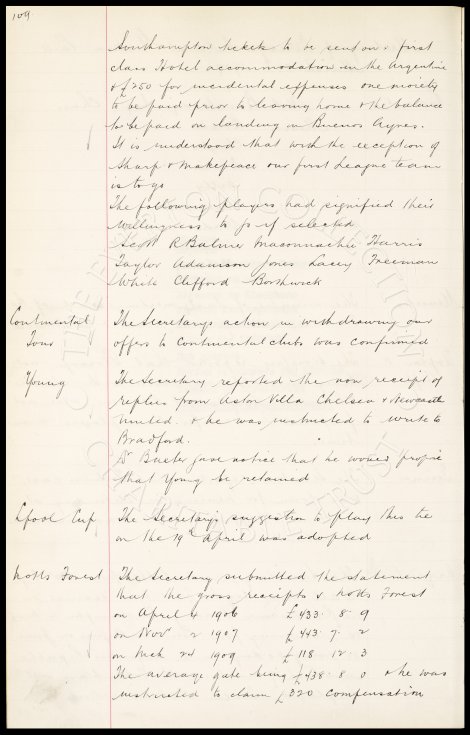 109
Southampton tickets to be sent on & first
class Hotel accommodation in the Argentine
& £250 for incidental expenses one moiety
to be paid prior to leaving home & the balance
to be paid on landing in Buenos Ayres.
It is understood that with the exception of
Sharp & Makepeace our first League team
is to go
The following players had signified their
willingness to go if selected
Scott R Balmer Maconnachie Harris
Taylor Adamson Jones Lacey Freeman
White Clifford Borthwick
Continental Tour
The Secretary's action in withdrawing our
offers to Continental clubs was confirmed
Young
The Secretary reported the non receipt of
replies from Aston Villa Chelsea & Newcastle
United. & he was instructed to write to
Bradford.
Dr Baxter gave notice that he would propose
that Young be retained
L'pool Cup
The Secretary's suggestion to play this tie
on the 19th April was adopted
Notts Forest
The Secretary submitted the statement
that the gross receipts v Notts Forest
on April 4 1906 £433. 8. 9
on Nov 2 1907 £443. 7. 2
on Mch 24 1909 £118. 12. 3
The average gate being £438. 8. 0 & he was
instructed to claim £320 compensation